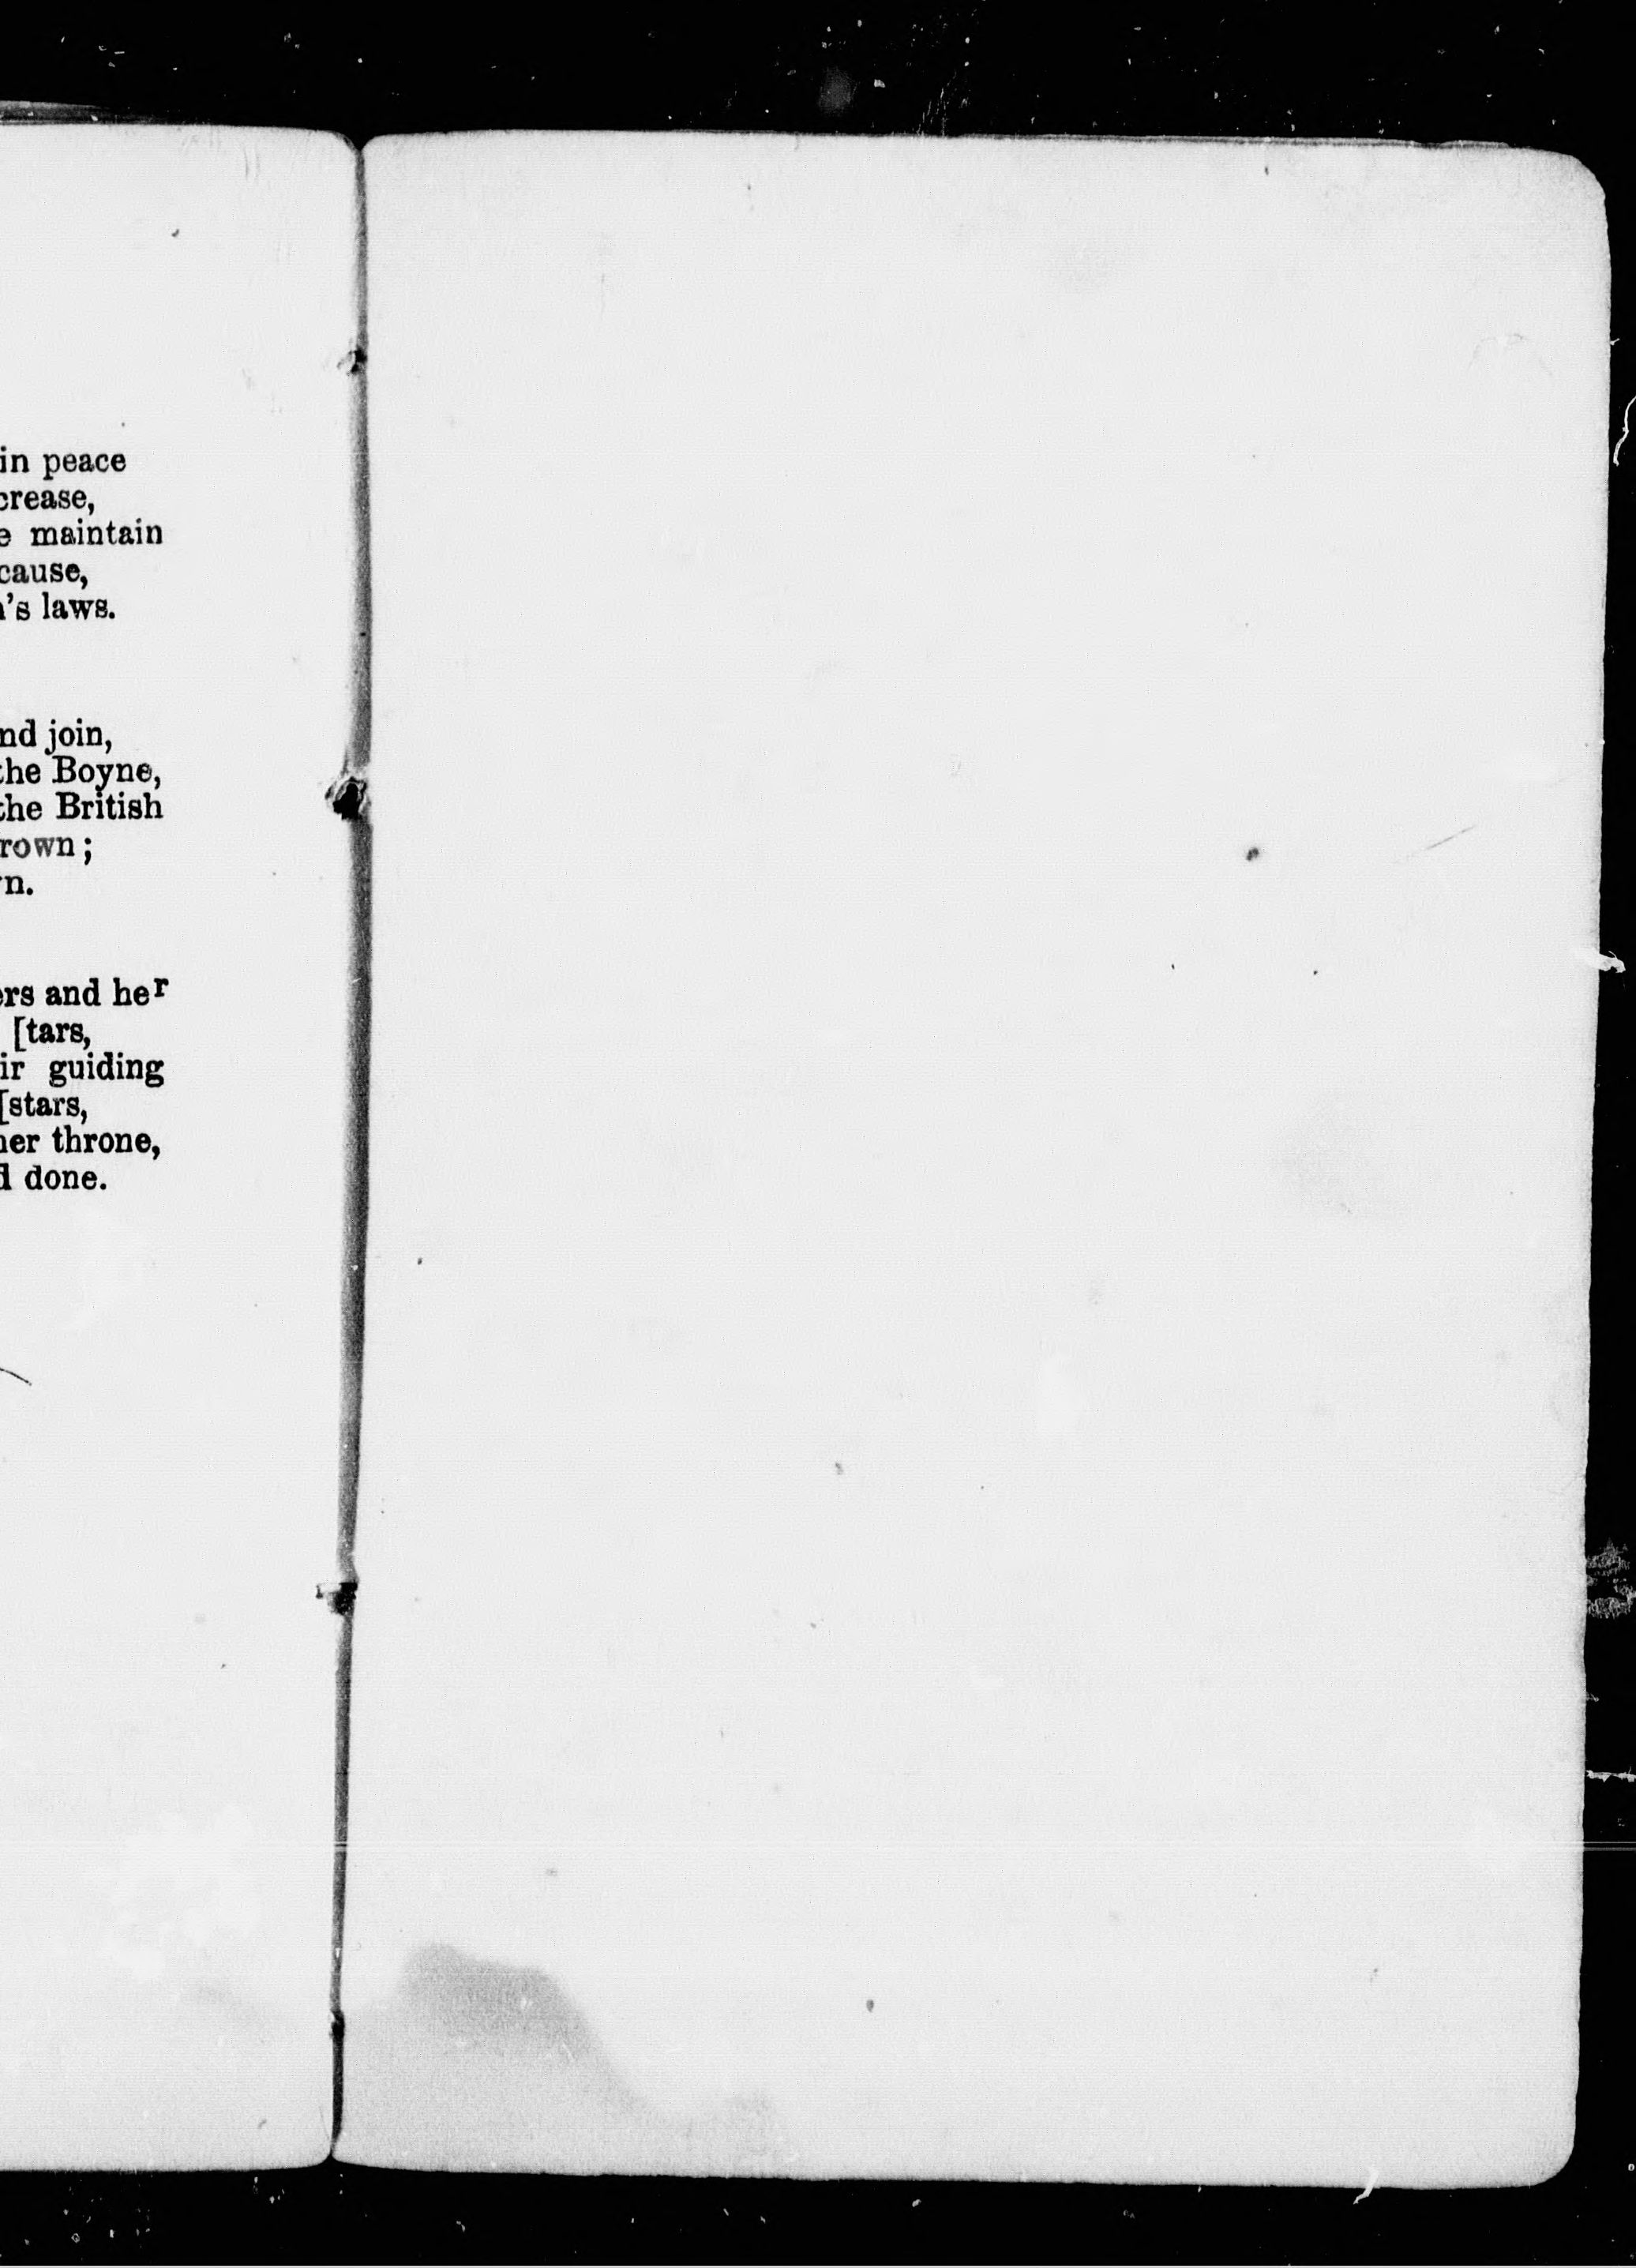 in peace
crease,
e maintain
cause,
's laws.
nd join,
the Boyne,
the British
rown ;
n.
ers and her
[tars,
ir guiding
[stars,
her throne,
d done.